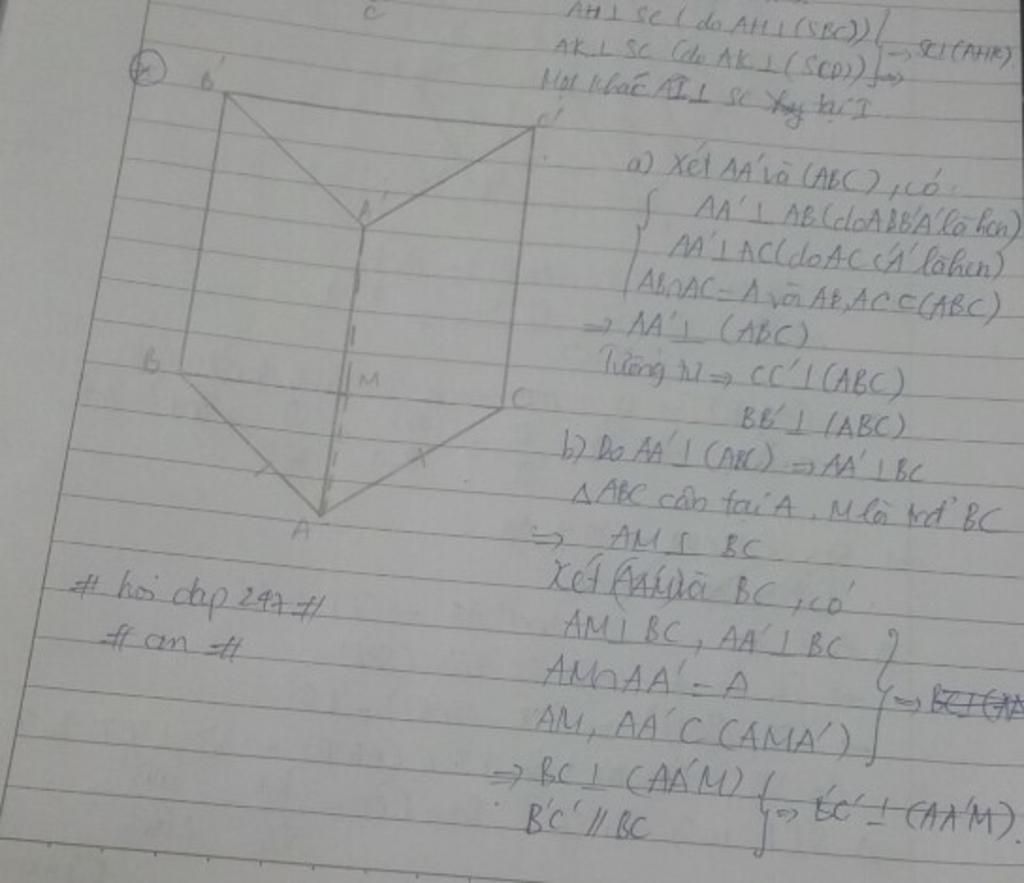 C
AH ⊥ SC (do AH ⊥ (SBC))
AK ⊥ SC (do AK ⊥ (SCD)) => SC ⊥ (AHK)
Mặt khác AI ⊥ SC tại I
B'
C'
A'
B
M
C
A
a) Xét AA' và (ABC), có
AA' ⊥ AB (do ABB'A' là hcn)
AA' ⊥ AC (do ACC'A' là hcn)
AB∩AC = A và AB, AC ⊂ (ABC)
=> AA' ⊥ (ABC)
Tương tự => CC' ⊥ (ABC)
BB' ⊥ (ABC)
b) Do AA' ⊥ (ABC) => AA' ⊥ BC
△ABC cân tại A, M là trđ BC
=> AM ⊥ BC
Xét và BC, có
AM ⊥ BC, AA' ⊥ BC
AM∩AA' = A
AM, AA' ⊂ (AMA') =>
=> BC ⊥ (AA'M)
B'C' // BC => B'C' ⊥ (AA'M).
# hoi dap 247 #
# an #